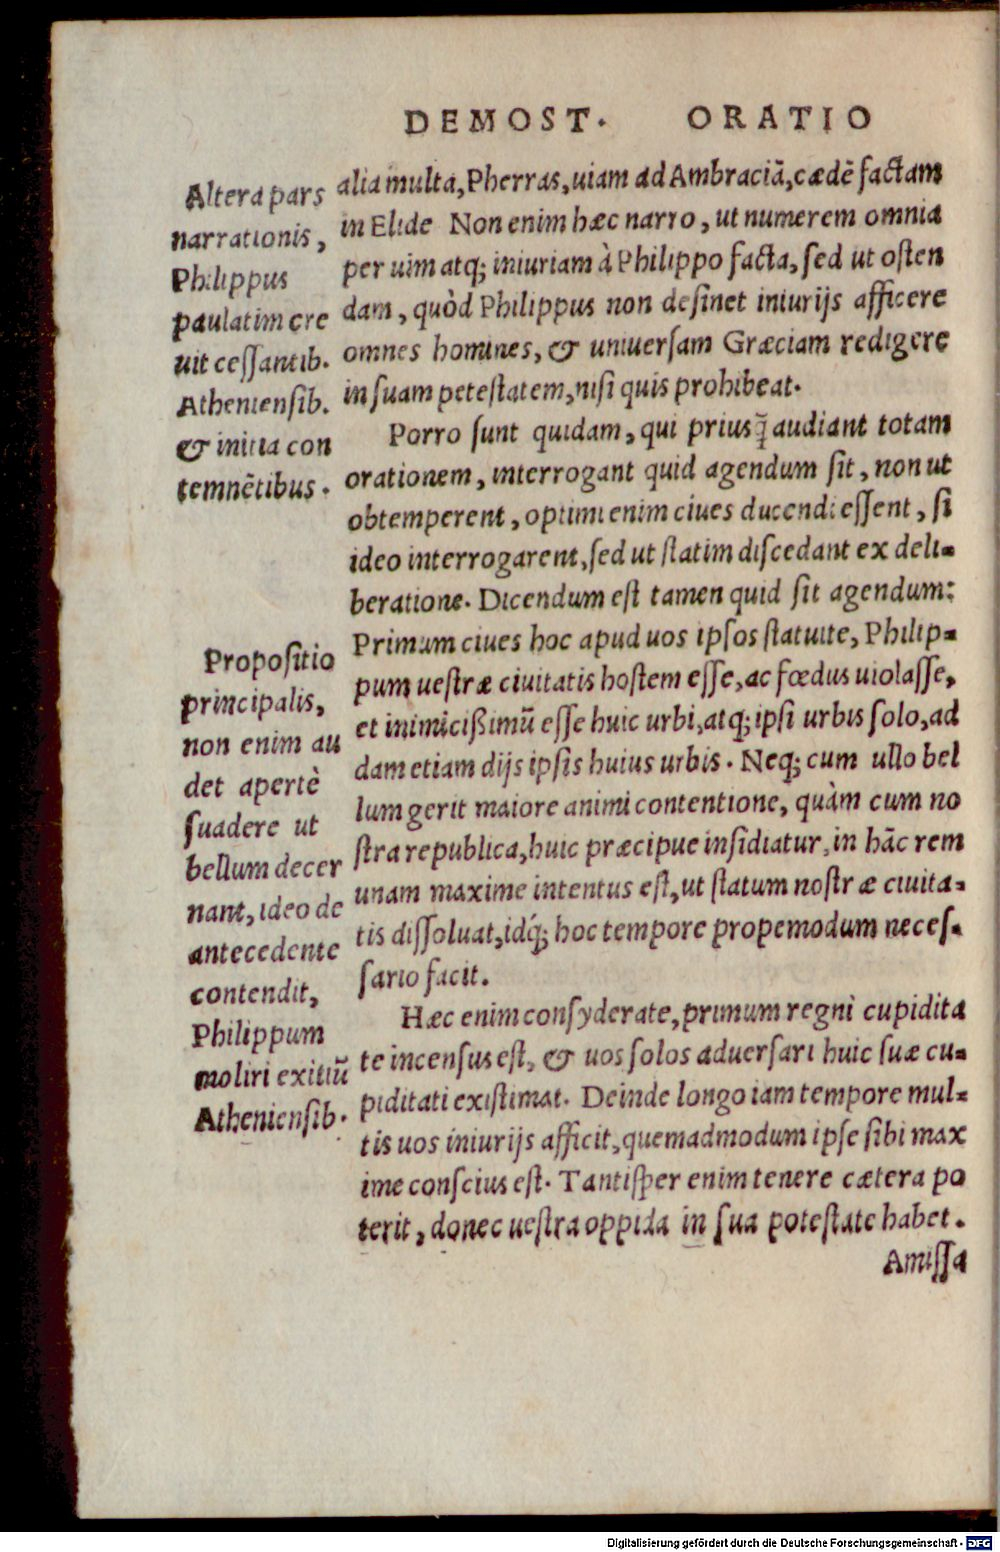 DEMOST. ORATIO
Altera pars
narrationis,
Philippus
paulatim cre
uit cessantib.
Atheniensib.
& initia con
temnẽtibus.
alia multa, Pherras, uiam ad Ambraciã, cædẽ factam
in Elide Non enim hæc narro, ut numerem omnia
per uim atq; iniuriam à Philippo facta, sed ut osten
dam, quòd Philippus non desinet iniurijs afficere
omnes homines, & uniuersam Græciam redigere
in suam petestatem, nisi quis prohibeat.
Porro sunt quidam, qui priusq̃ audiant totam
orationem, interrogant quid agendum sit, non ut
obtemperent, optimi enim ciues ducendi essent, si
ideo interrogarent, sed ut statim discedant ex deli-
beratione. Dicendum est tamen quid sit agendum:
Primum ciues hoc apud uos ipsos statuite, Philip-
pum uestræ ciuitatis hostem esse, ac fœdus uiolasse,
et inimicißimũ esse huic urbi, atq; ipsi urbis solo, ad
dam etiam dijs ipsis huius urbis. Neq; cum ullo bel
lum gerit maiore animi contentione, quàm cum no
stra republica, huic præcipue insidiatur, in hãc rem
unam maxime intentus est, ut statum nostræ ciuita-
tis dissoluat, idq́; hoc tempore propemodum neces-
sario facit.
Propositio
principalis,
non enim au
det apertè
suadere ut
bellum decer
nant, ideo de
antecedente
contendit,
Philippum
moliri exitiũ
Atheniensib.
Hæc enim consyderate, primum regni cupidita
te incensus est, & uos solos aduersari huic suæ cu-
piditati existimat. Deinde longo iam tempore mul-
tis uos iniurijs afficit, quemadmodum ipse sibi max
ime conscius est. Tantisper enim tenere cætera po
terit, donec uestra oppida in sua potestate habet.
Amissa
Digitalisierung gefördert durch die Deutsche Forschungsgemeinschaft - DFG